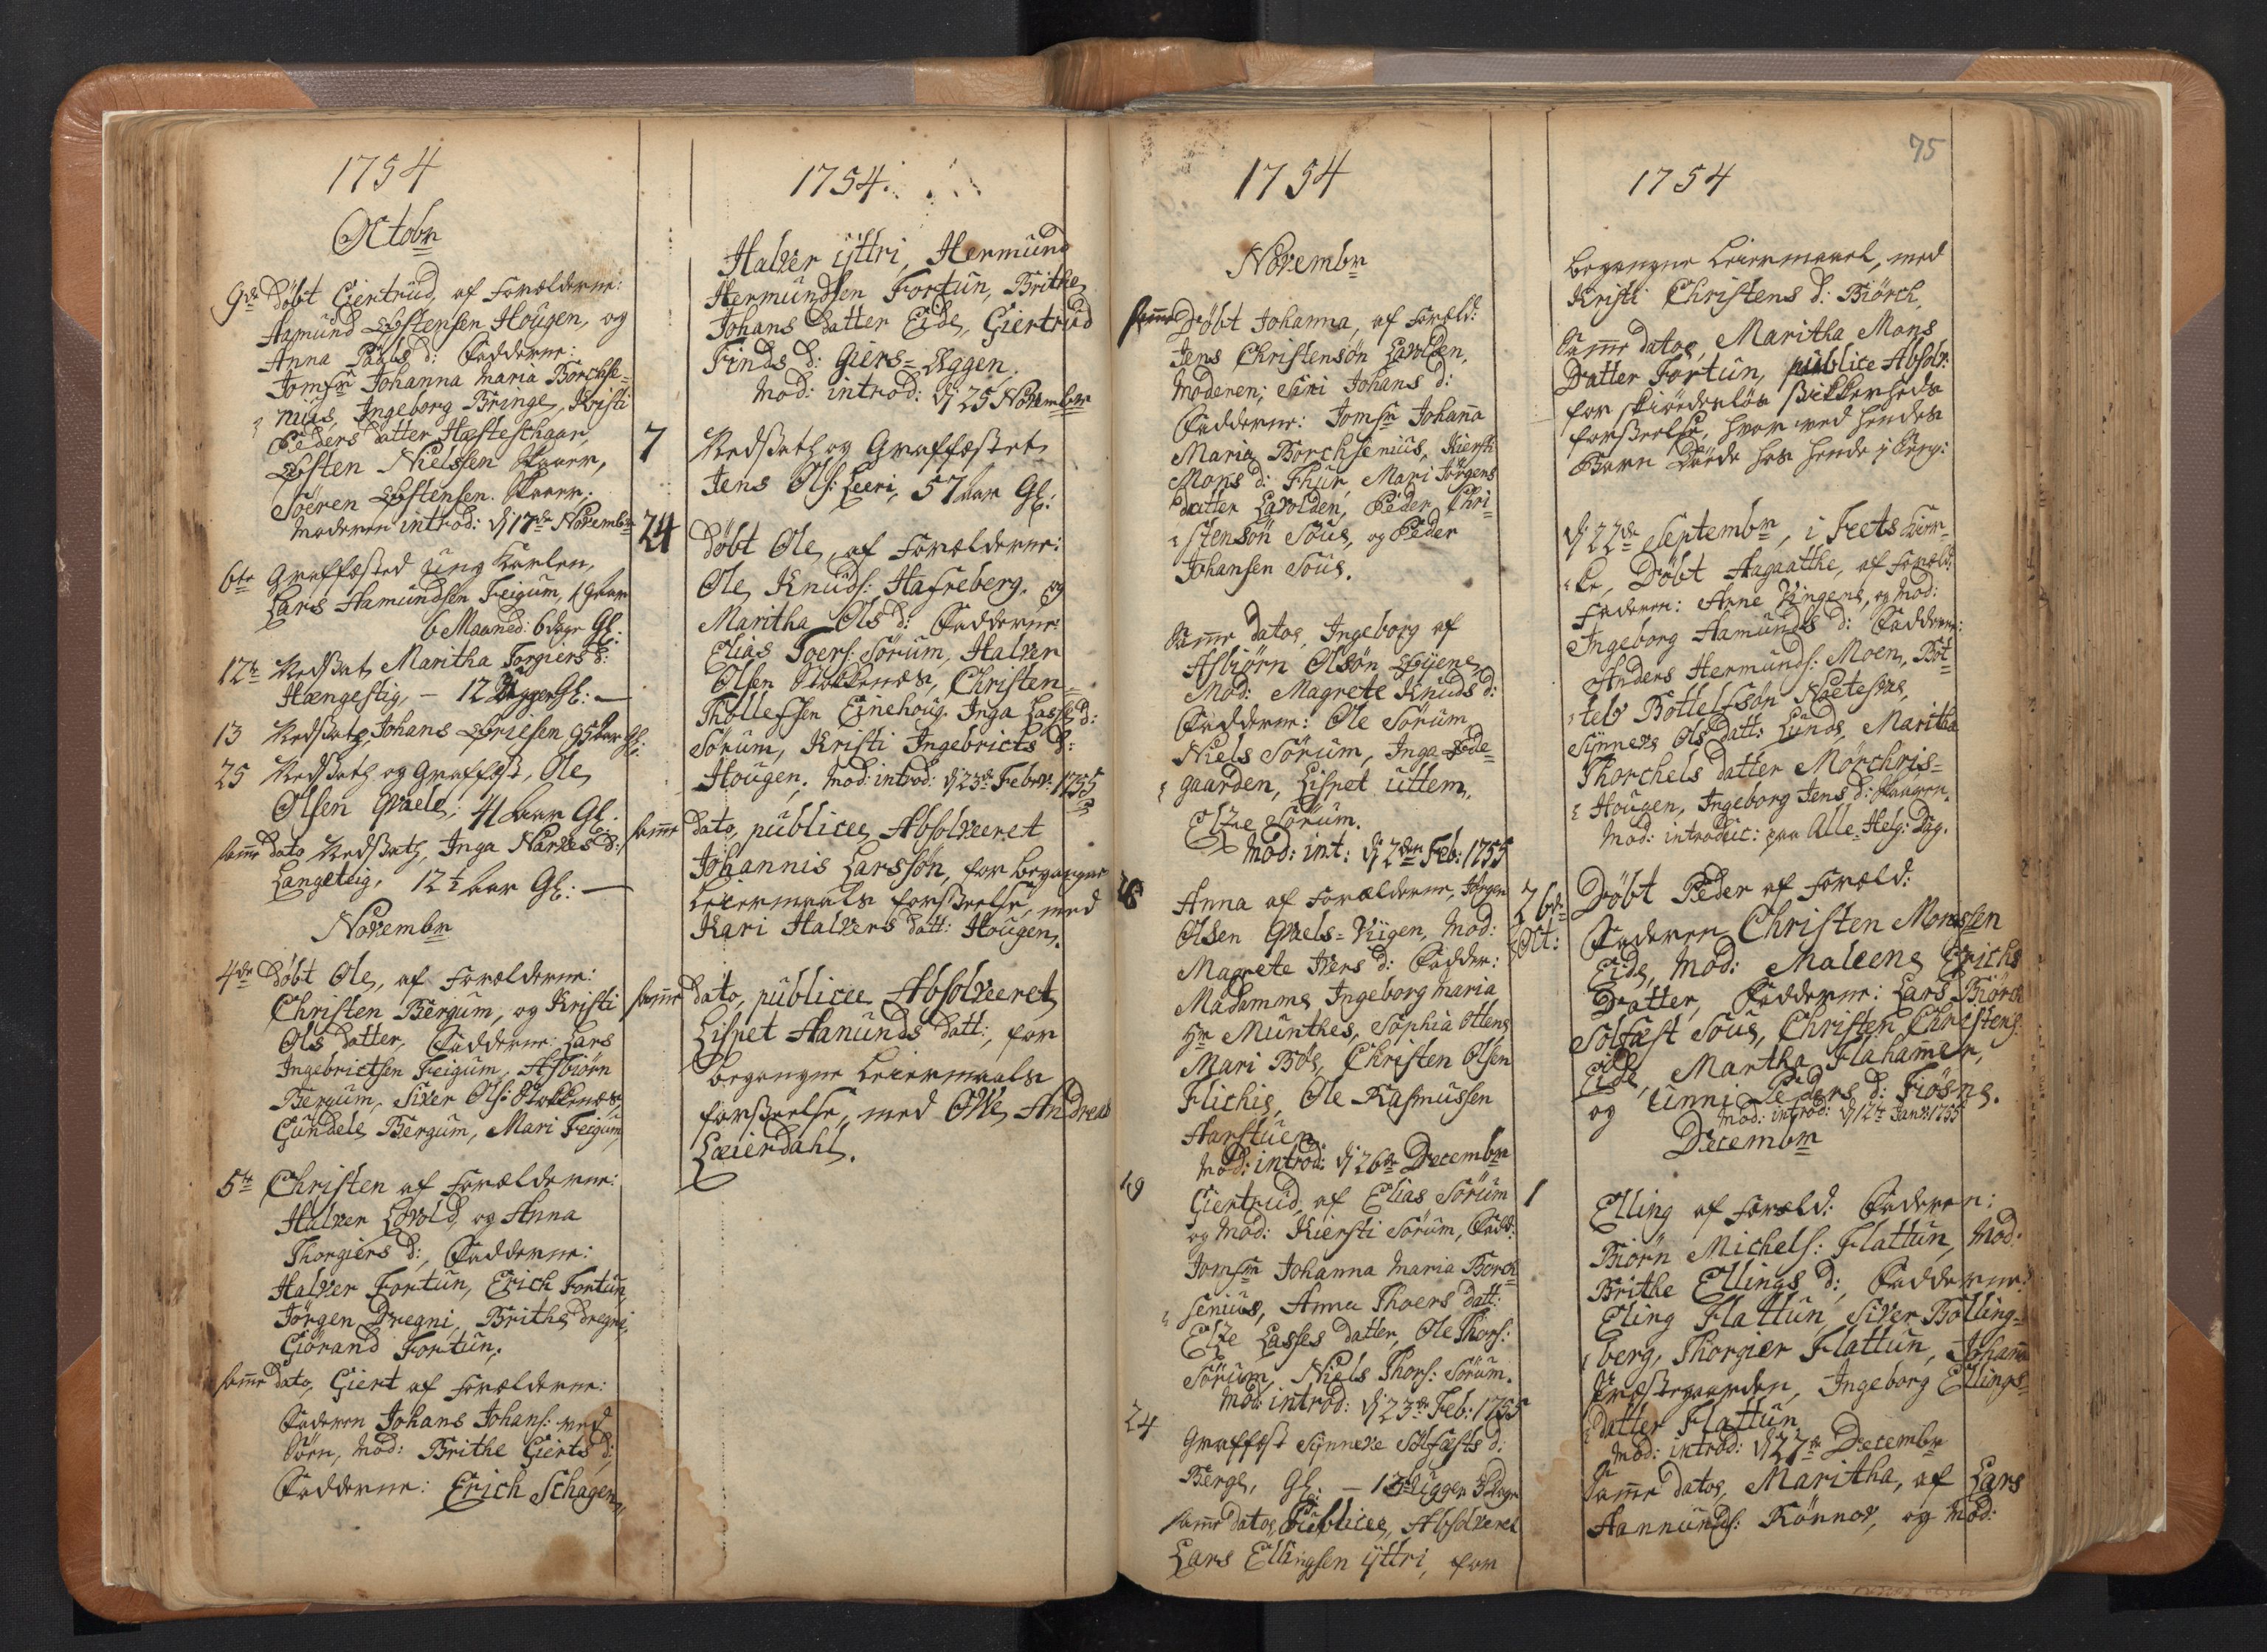 1754
Octobr
9de Döbt Giertrud, af Forældrene:
Aamund Østensen Hougen, og
Anna Pauls d: Fadderne:
Jomfr Johanna Maria Borchse-
nius, Ingeborg Bringe, Kristi
Peders datter Hæstesthaar,
Østen Nielssen Skaar,
Soeren Østensen Skaar.
Moderen introd: dj 17de Novembr
6te Graffæsted ung Karlen,
Lars Aamundsen Feigum, 19 aar
6 Maaned: 6 dage Gl:
12te Nedsat Maritha Torgiers d:
Hængestig, – 12 Uger Gl: –
13 Nedsat, Johans Ericsen 95 aar Gl:
25 Nedsath og Graffæst, Ole
Olsen Qvale, 41 aar Gl:
samme dato Nedsath, Inga Narves d:
Langeteig, 12 ½ aar Gl: –
Novembr
4de Döbt Ole, af Forældrene:
Christen Bergum, og Kristi
Ols datter, Fadderne: Lars
Ingebrictsen Feigum, Asbiörn
Bergum, Siver Ols: Stokkenæs
Gundele Bergum, Mari Feigum
5te Christen af Forældrene:
Halver Lövold, og Anna
Thorgiers d:, Fadderne:
Halver Fortun, Erich Fortun,
Jörgen Dregni, Brithe Dregni,
Giörand Fortun,
samme dato, Giert af Forældrene:
Faderen Johans Johans: ved
Söen, Mod: Brithe Gierts d:
Fadderne: Erich Schagen,
1754.
Halver yttri, Hermund
Hermundsen Fortun, Brithe
Johans datter Eide, Giertrud
Finds d: Giers-Eggen.
Mod: introd: dj 25 Novembr
7 Nedsath og Graffæstet
Jens Ols: Leeri, 57 aar Gl:
24 döbt Ole, af Forældrene:
Ole Knuds: Hafreberg, og
Maritha Ols d: Fadderne:
Elias Toers: Sörum, Halver
Olsen Stokkenæs, Christen
Thollefssen Einehoug, Inga Lasses d:
Sörum, Kristi Ingebricts d:
Hougen, Mod: introd: dj 23de Febr: 1755
samme dato, publice Absolveret
Johannis Larssøn, for begangne
Leiermaals forseelse, med
Kari Halvers datt: Hougen.
samme dato, publice Absolveret
Lispet Aanunds datt:, for
begangne Leiermaals
forseelse, med Ole Andreas
Leierdahl.
1754
Novembr
samme Döbt Johanna, af Foræld:
Jens Christensön Lavolden,
Moderen; Siri Johans d:
Fadderne: Jomfr Johanna
Maria Borchsenius, Kiersti
Mons d: Fhur, Mari Jörgens
datter Lavolden, Peder Chri-
stensön Sous, og Peder
Johansen Sous.
Samme dato, Ingeborg af
Asbiörn Olsön Øyene,
Mod: Magrete Knuds d:
Fadderne: Ole Sörum
Niels Sörum, Inga Öde-
gaarden, Lispet uttem,
Elze Sörum.
Mod: int: dj 2den Feb: 1755
Anna af Forældrene, Jörgen
Olsen Qvals-Viigen, Mod:
Magrete Ivers d: Fadder:
Madamme Ingeborg Maria
Hr Munthes, Sophia Ottens
Mari Böe, Christen Olsen
Flichie, Ole Rasmussen
Aarstuen
Mod: introd: dj 26de Decembr
19 Giertrud, af Elias Sörum
og Mod: Kiersti Sörum, Fadd:
Jomfr Johanna Maria Borch-
senius, Anna Thoers datt:
Elze Lasses datter, Ole Thors:
Sörum, Niels Thors: Sörum.
Mod: introd: dj 23de Feb: 1755
24 Graffæst Synneve Sölfæsts d:
Berge, Gl: – 13 Uger 3 dage
samme dato Publice, Absolveret
Lars Ellingsen yttri, for
75
1754
begangne Leiermaal, med
Kristi Christens d: Biörch,
Samme dato, Maritha Mons
Datter Fortun, publice Absolv:
for skiödeslös Sikkerheds
forseelse, hvor ved hendes
Barn döede hos hende i Seng:
dj 22de Septembr, i Feets Kir-
ke, Döbt Aagaathe, af Foræld:
Faderen: Arne Vingene, og Mod:
Ingeborg Aamunds d: Faddern:
Anders Hermunds: Moen, Bot-
telv Bottelfsøn Næteson,
Synneve Ols datt: Lunde, Maritha
Thorchels datter Mörchris-
Hougen, Ingeborg Jens d: Skaaren.
Mod: introduc: paa Alle Helg: Dag.
26de Oct: Döbt Peder af Foræld:
Faderen Christen Monssen
Eide, Mod: Maleene Erichs
Datter, Fadderne: Lars Biörch
Solfæst Sous, Christen Christens:
Eide, Martha Flahammer,
og Unni Peders d: Fiösne.
Mod: introd: dj 12te Jan: 1755
Decembr
1 Elling af Foræld: Faderen:
Biörn Michels: Flattun, Mod:
Brithe Ellings d:, Fadderne:
Eling Flattun, Siver Bolling-
berg, Thorgier Flattun, Johann
Præstegaarden, Ingeborg Ellings-
datter Flattun
Mod: introd: dj 27de Decembr
Samme dato, Maritha, af Lars
Aannunds: Rönnov, og Mod: